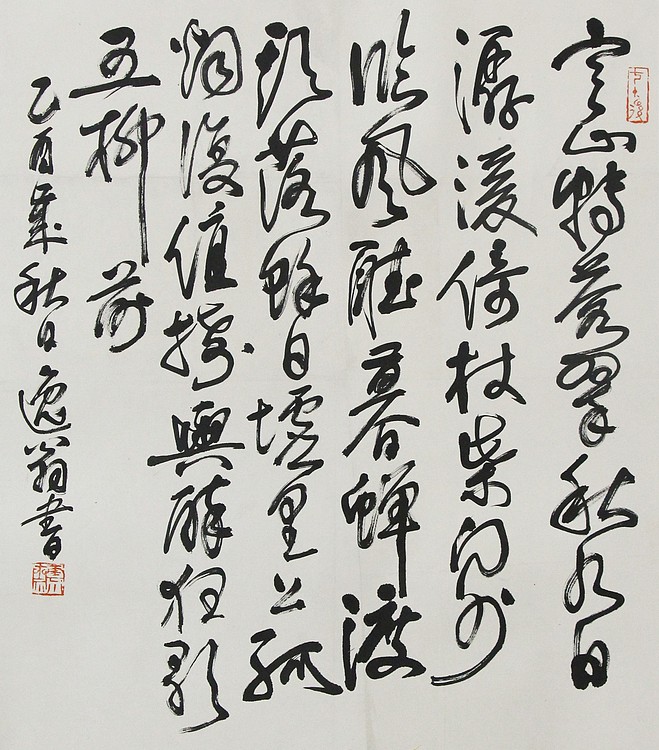 寒山轉蒼翠秋水日
潺湲倚杖柴門外
臨風聽暮蟬渡
頭落餘日墟里上孤
烟復值接輿醉狂歌
五柳前
乙酉歲秋日逸翁書